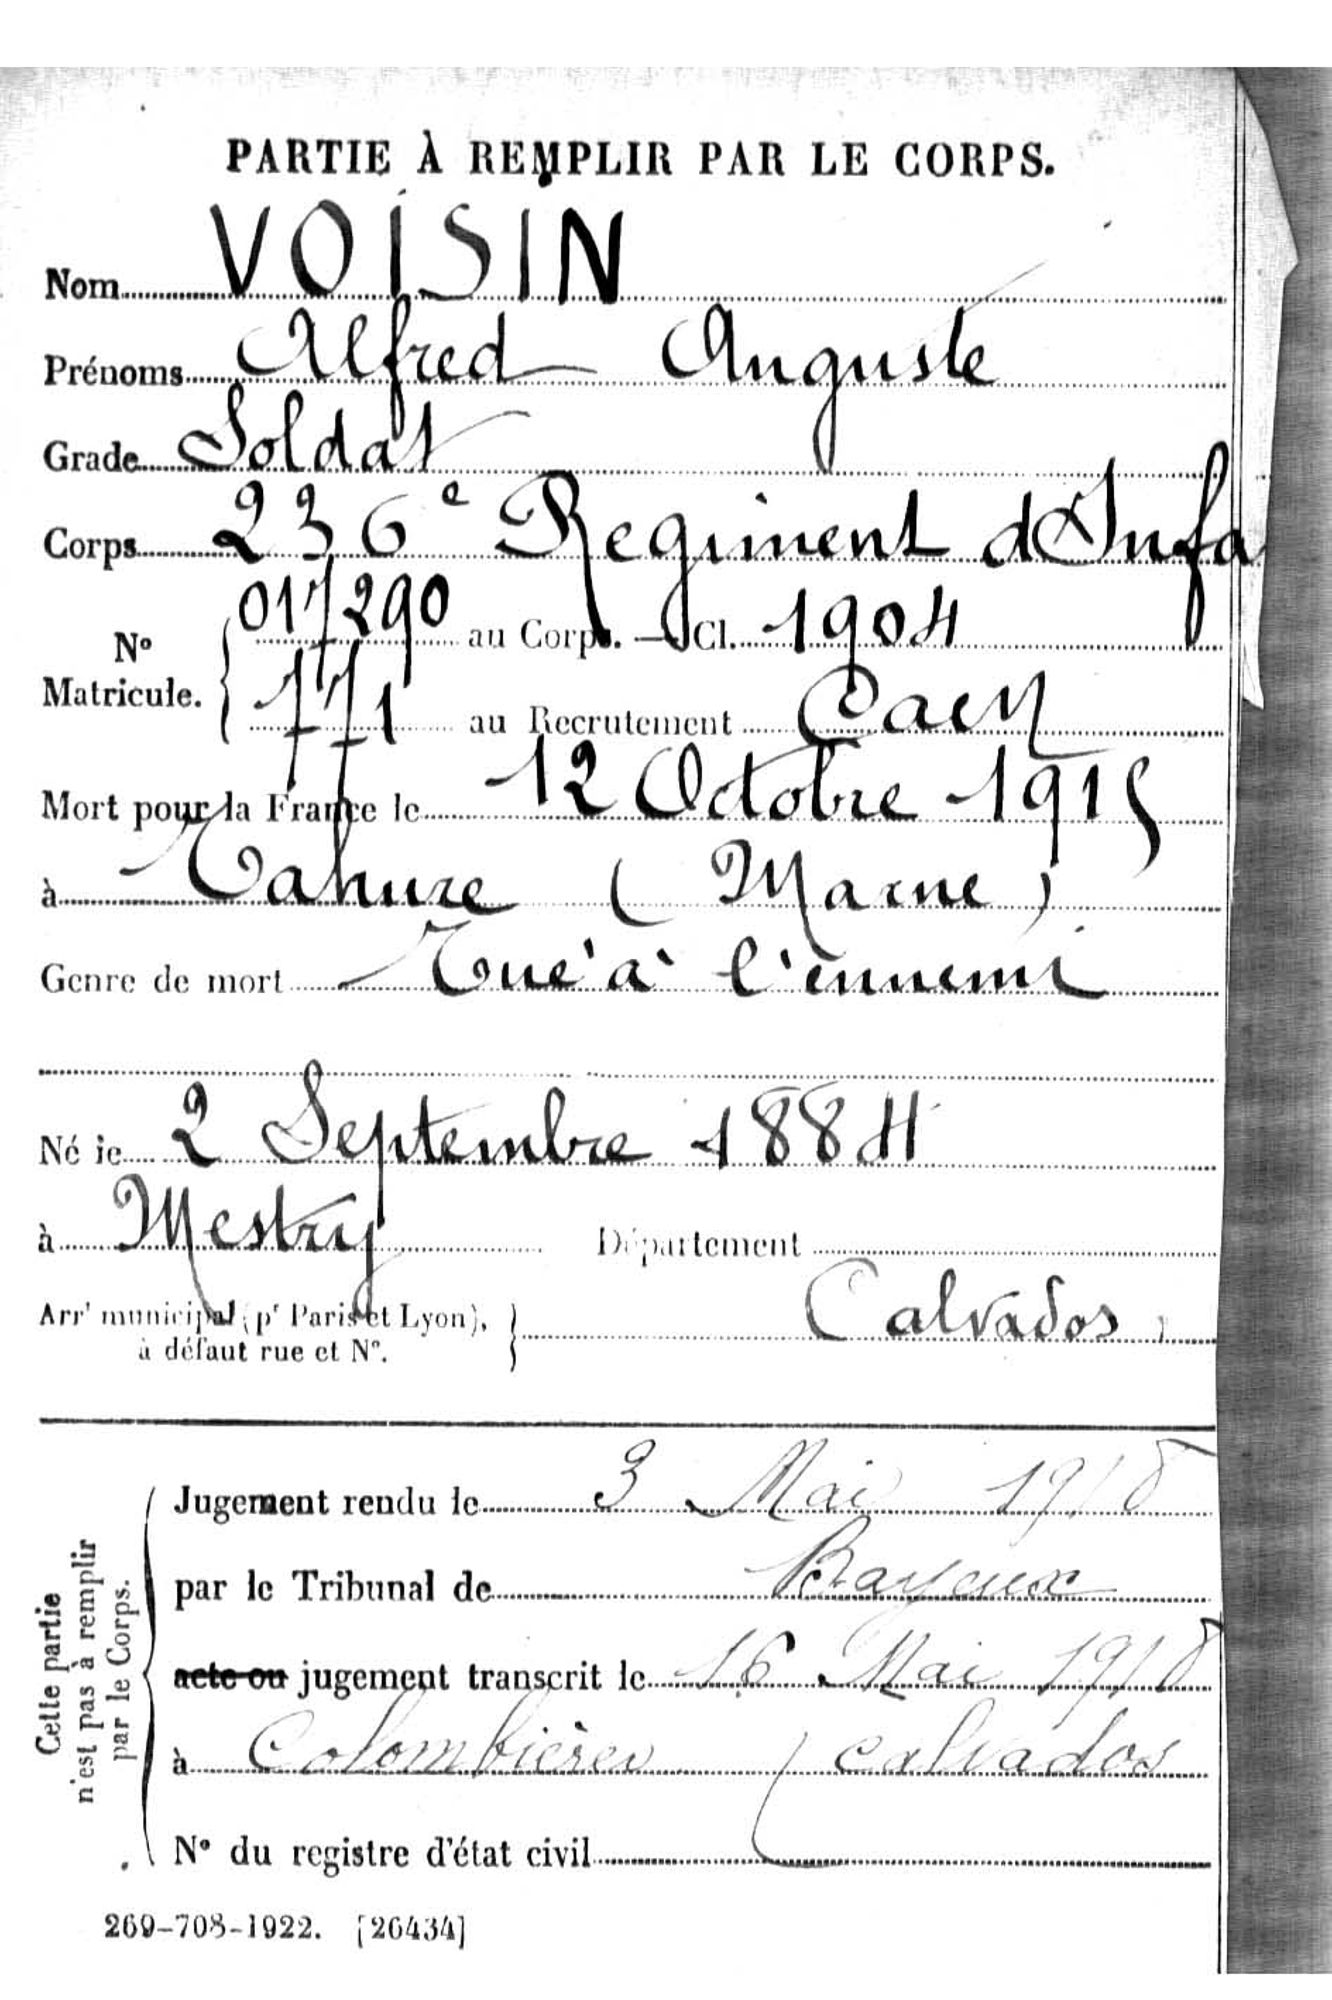 PARTIE À REMPLIR PAR LE CORPS.
Nom VOISIN
Prénoms Alfred Auguste
Grade Soldat
Corps 236e Régiment d'Infa
No Matricule. { 017290 au Corps. — Cl. 1904
771 au Recrutement Caen
Mort pour la France le 12 Octobre 1915
à Tahure (Marne)
Genre de mort Tué à l'ennemi
Né le 2 Septembre 1884
à Mestry Département
Arrt municipal (pr Paris et Lyon), à défaut rue et No. } Calvados
Cette partie n'est pas à remplir par le Corps.
Jugement rendu le 3 Mai 1918
par le Tribunal de Bayeux
acte ou jugement transcrit le 16 Mai 1918
à Colombières (Calvados
No du registre d'état civil
269-708-1922. [26434]